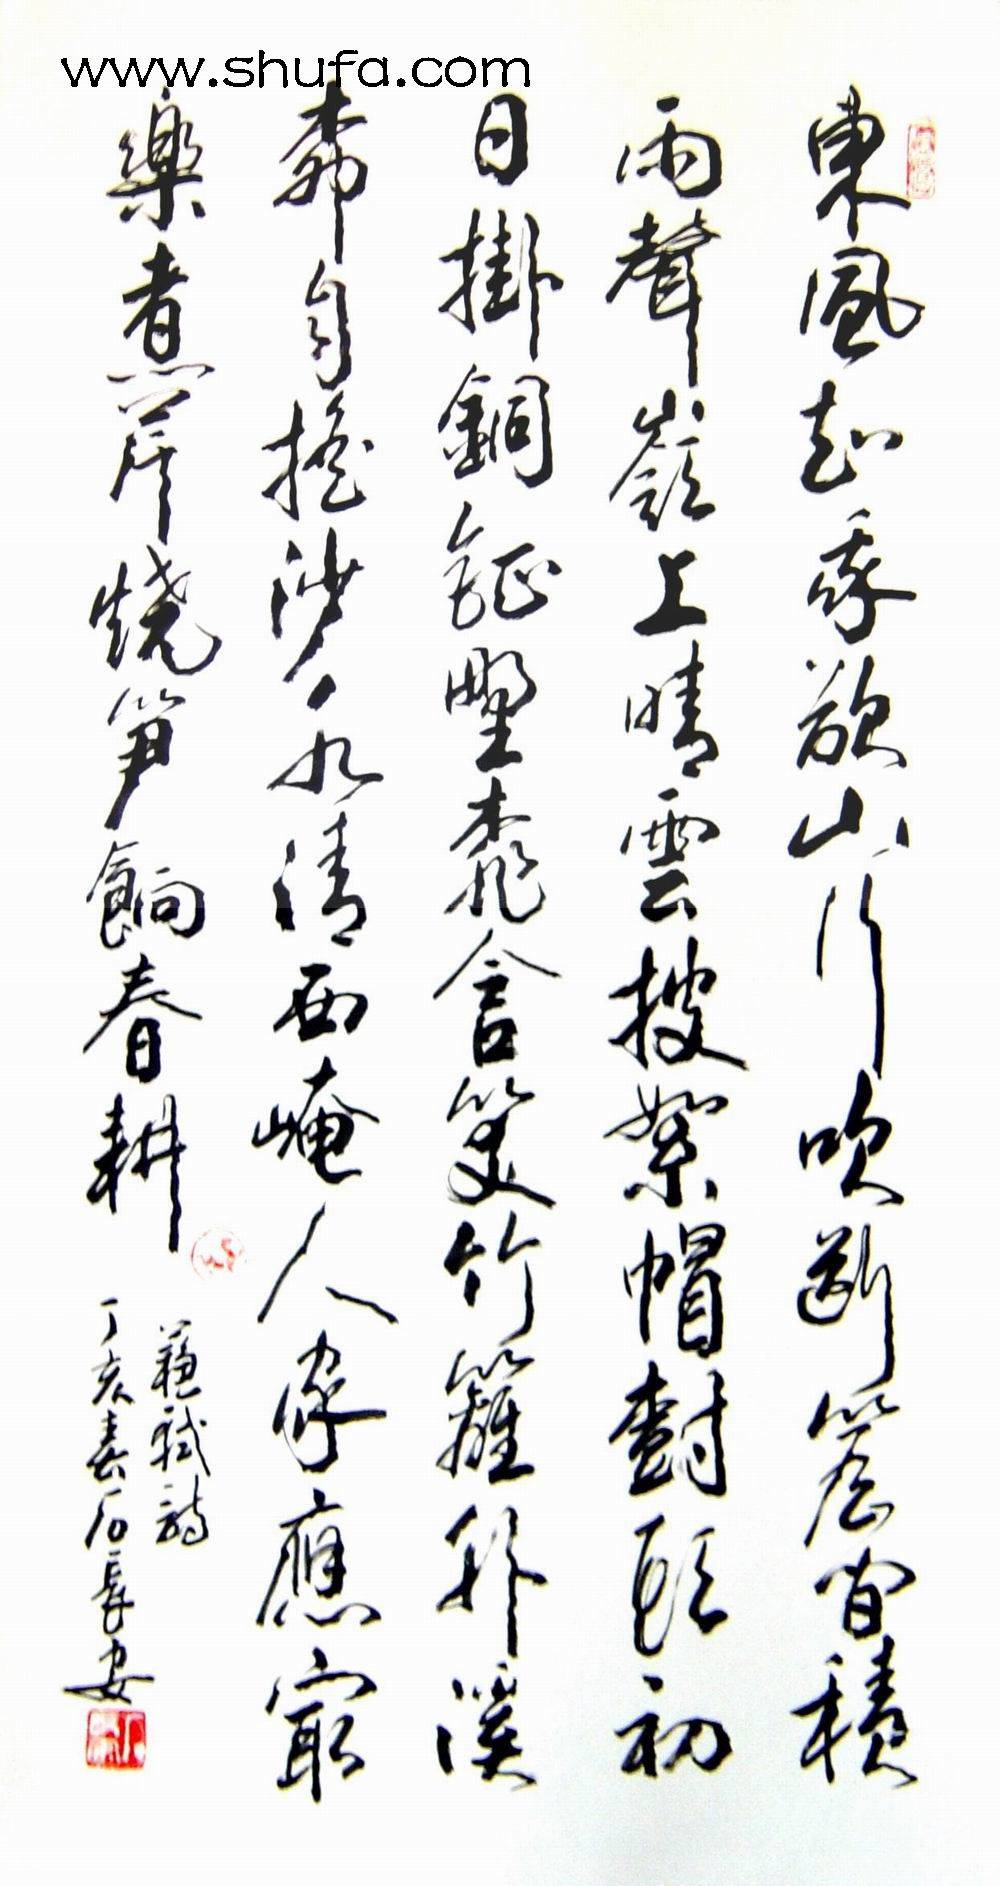 www.shufa.com
東風知我欲山行吹斷簷間積
雨聲嶺上晴雲披絮帽樹頭初
日掛銅鉦野桃含笑竹籬短溪
柳自搖沙水清西崦人家應最
樂煮芹燒笋餉春耕
蘇軾詩
丁亥春石長安